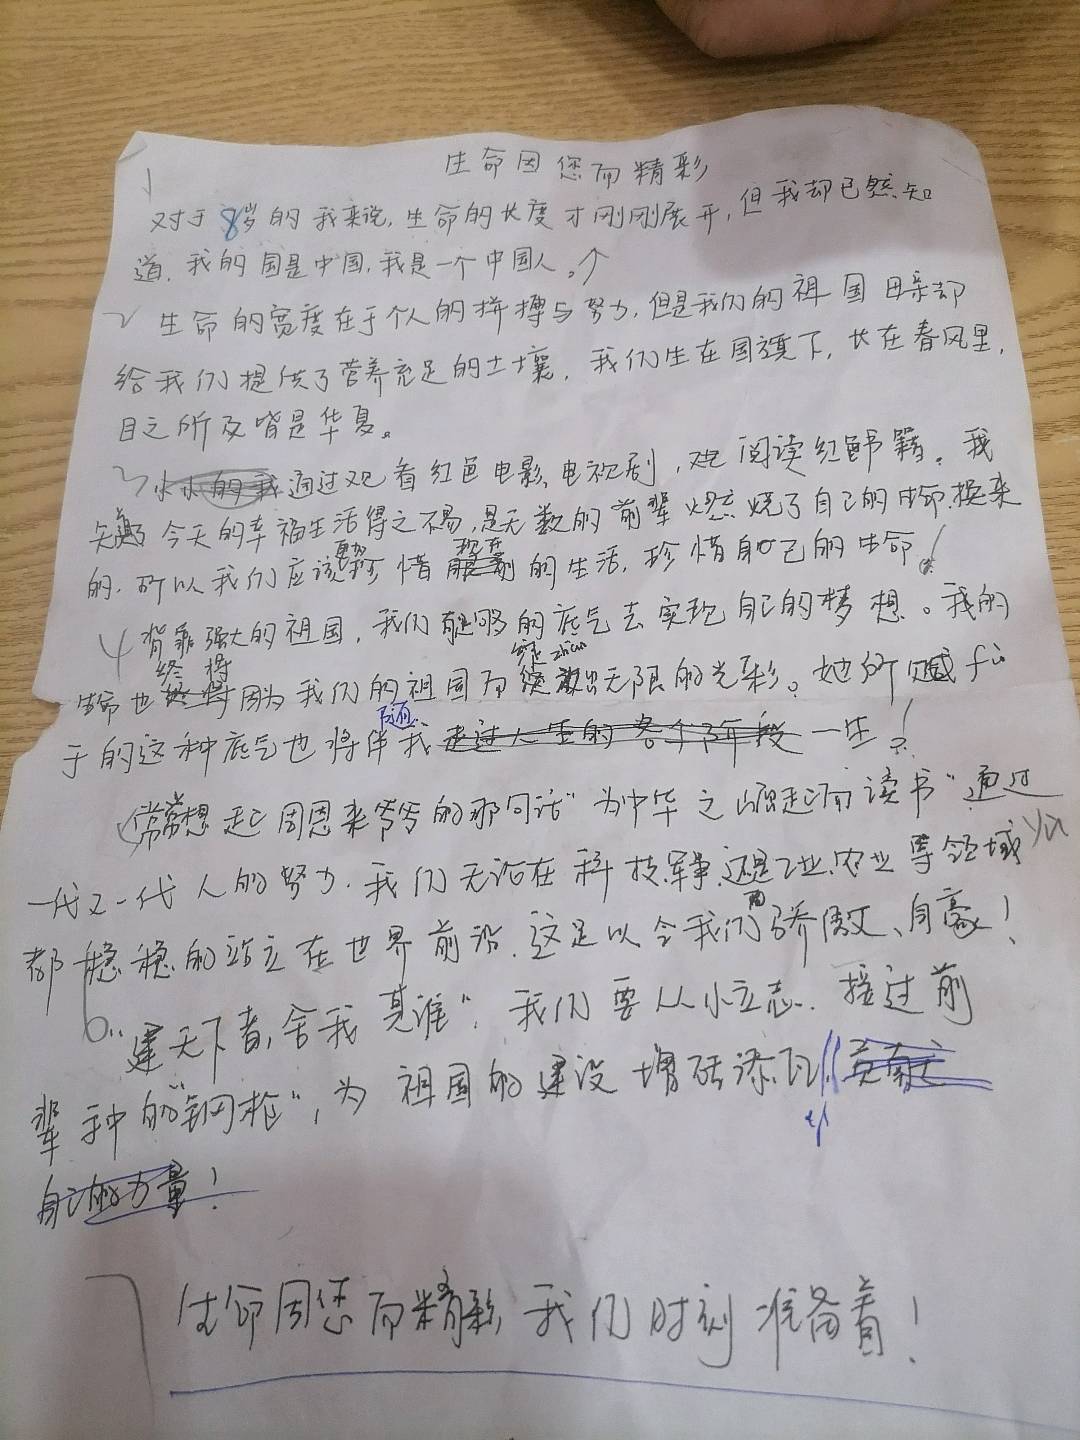 生命因您而精彩
1
对于8岁的我来说,生命的长度才刚刚展开,但我却已然知
道,我的国是中国,我是一个中国人。
2 生命的宽度在于个人的拼搏与努力,但是我们的祖国母亲却
给我们提供了营养充足的土壤,我们生在国旗下,长在春风里,
目之所及皆是华夏。
3 小小的我通过观看红色电影、电视剧,阅读红色书籍。我
知道了今天的幸福生活得之不易,是无数的前辈燃烧了自己的生命换来
的,所以我们应该更加珍惜现在的生活,珍惜自己的生命!
4 背靠强大的祖国,我们有足够的底气去实现自己的梦想。我的
终将 绽 zhàn
生命也终将因为我们的祖国而绽放出无限的光彩。她所赋 fù
于的这种底气也将伴随我走过人生的各个阶段一生!
常常想起周恩来爷爷的那句话"为中华之崛起而读书"通过
一代又一代人的努力,我们无论在科技、军事、还是工业、农业等领域 yù
都稳稳的站立在世界前沿,这足以令我们骄傲、自豪!
6 "建天下者,舍我其谁",我们要从小立志,接过前
辈手中的"钢枪",为祖国的建设增砖添瓦,贡献
自己的力量!
7 生命因您而精彩,我们时刻准备着!